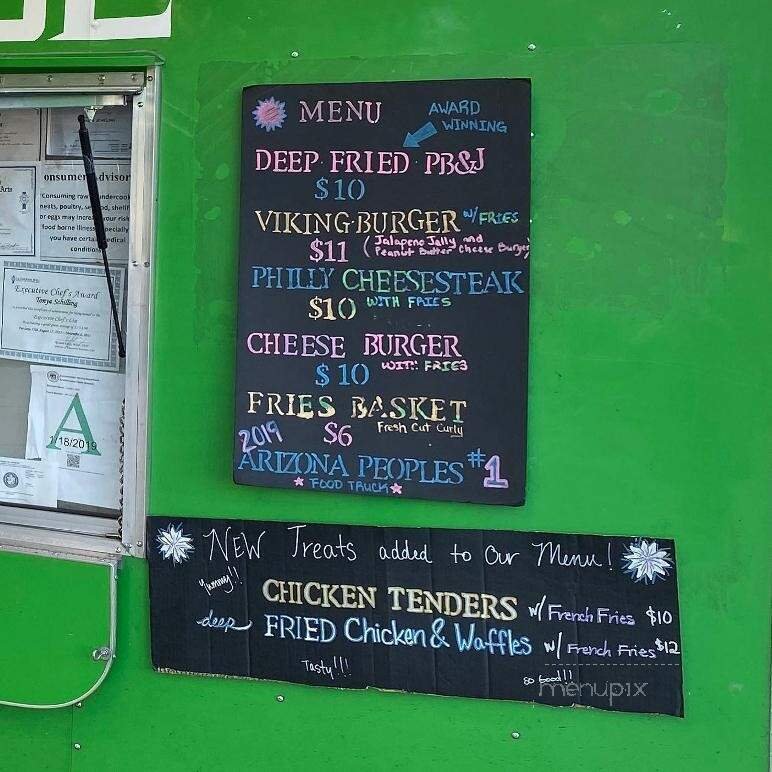 MENU
AWARD
WINNING
DEEP FRIED PB&J
$10
VIKING BURGER W/ FRIES
$11 (Jalapeno Jally and
Peanut Butter Cheese Burger)
PHILLY CHEESESTEAK
$10 WITH FRIES
CHEESE BURGER
$10 WITH FRIES
FRIES BASKET
$6 Fresh Cut Curly
2019
ARIZONA PEOPLES #1
FOOD TRUCK
NEW Treats added to our Menu!
Yummy!!
CHICKEN TENDERS w/ French Fries $10
deep FRIED Chicken & Waffles w/ French Fries $12
Tasty!!!
so good!!
menupix
onsumer Advisor
Consuming raw undercook
meats, poultry, seafood, shellf
or eggs may increase your risk
food borne illness, especially
you have certain medical
conditions
Executive Chef's Award
Tonya Schilling
A
1/18/2019